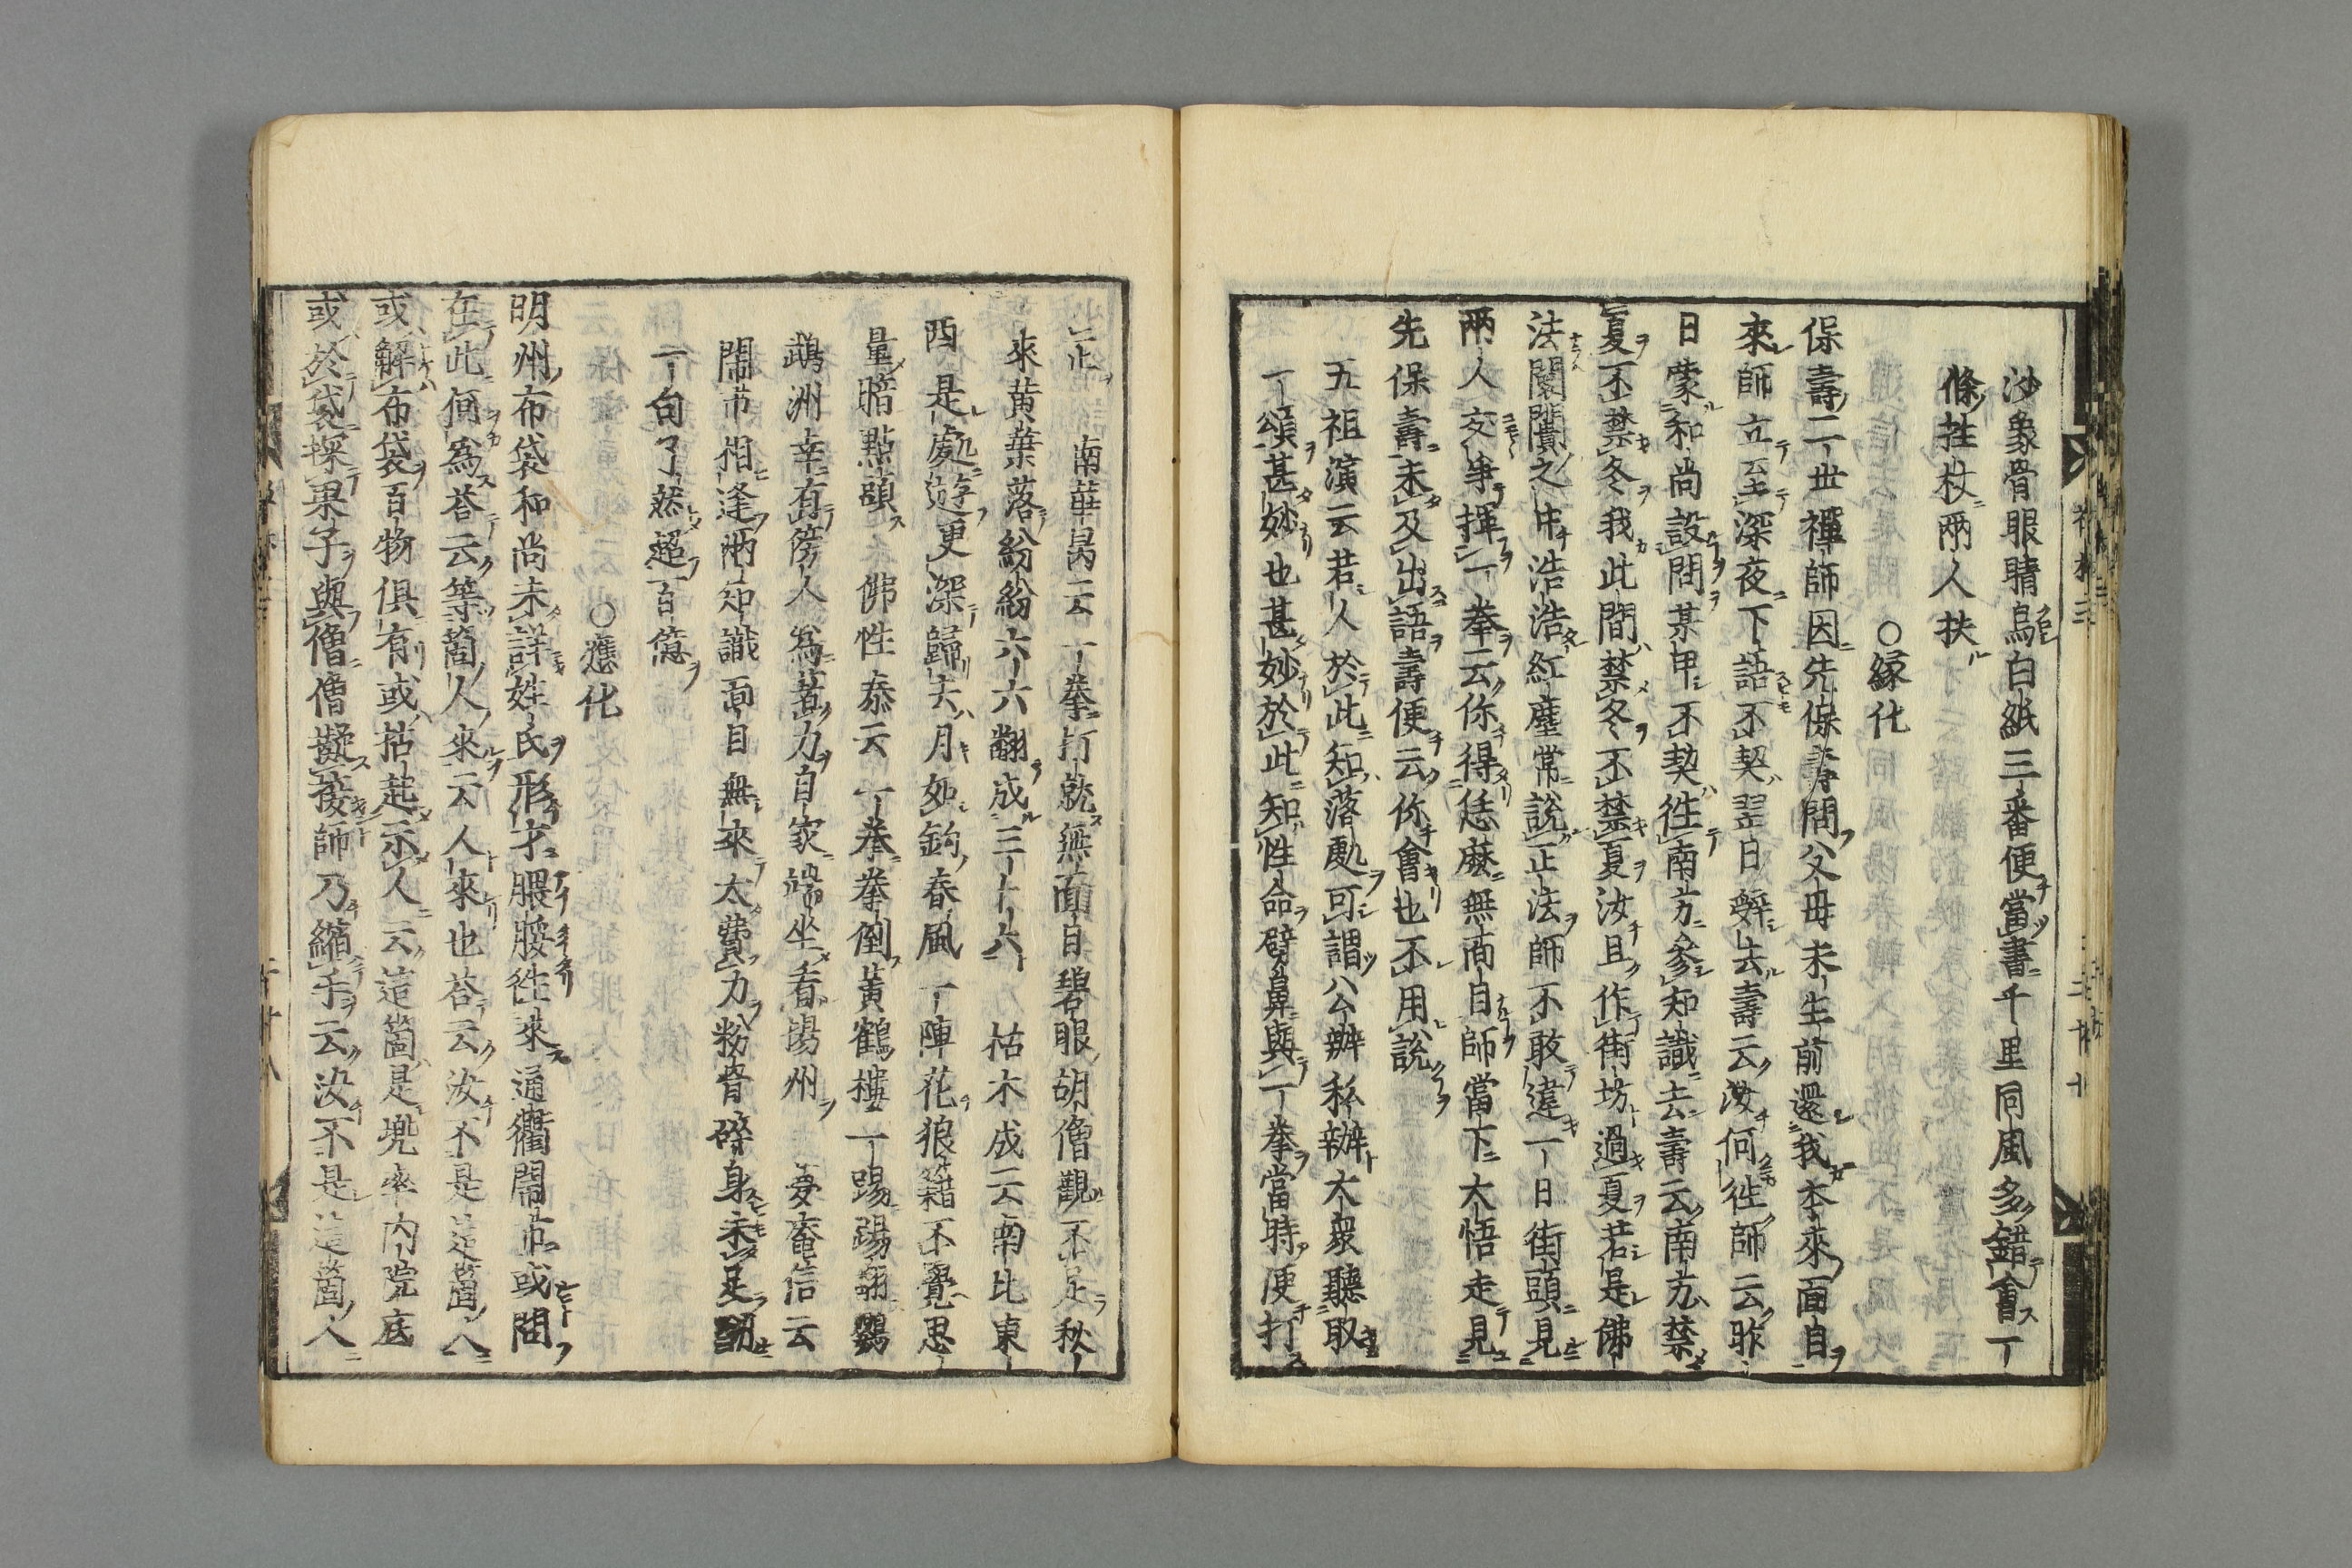 沙象骨眼睛烏白紙三番便當書千里同風多錯會一
條拄杖兩人扶
○緣化
保壽二世禪師因先保壽問父母未生前還我本來面目
來師立至深夜下語不契翌日辭去壽云汝何徃師云昨
日蒙和尚設問某甲不契徃南方參知識去壽云南方禁
夏不禁冬我此間禁冬不禁夏汝且作街坊過夏若是佛
法闤闠之中浩浩紅塵常說正法師不敢違一日街頭見
兩人交爭揮一拳云你得恁麼無面目師當下大悟走見
先保壽未及出語壽便云你會也不用說
五祖演云若人於此知落處可謂公辦私辦大衆聽取
一頌甚妙也甚妙於此知性命劈鼻與一拳當時便打
正 南華昺云一拳打就無面目碧眼胡僧觀不足秋
來黃葉落紛紛六六翻成三十六 枯木成云南北東
酉是處遊更深歸去月如鈎春風一陣花狼籍不覺思
量暗點頭 佛性泰云一拳拳倒黃鶴樓一踢踢翻鸚
鵡洲幸有傍人爲着力自家端坐看揚州 夢庵信云
鬧市相逢兩知識面目無來太費力粉骨碎身未足酬
一句了然超百億
○應化
明州布袋和尚未詳姓氏形才腲脮徃來通衢鬧市或問
在此何爲荅云等箇人來云人來也荅云汝不是這箇人
或解布袋百物俱有或拈起示人云這箇是兜率內院底
或於袋探果子與僧僧擬接師乃縮手云汝不是這箇人